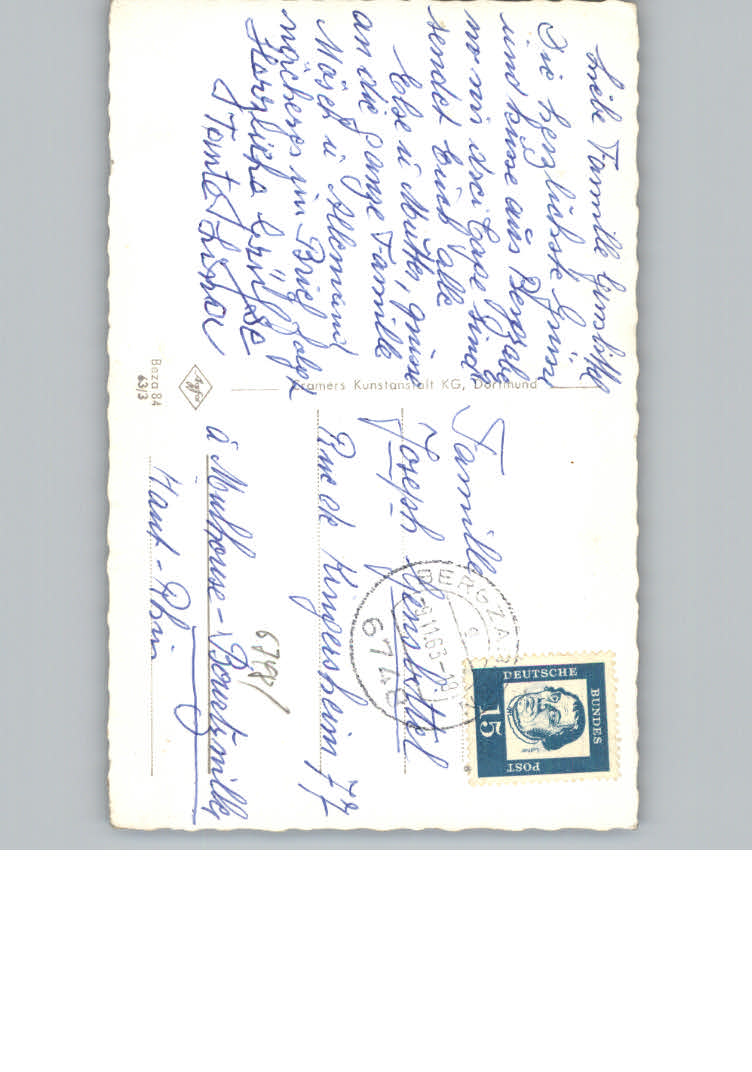 Liebe Familie Gensbittel
Die herzlichste Grüße
und Küsse aus Bergzab
wo wir drei Tage sind
sendet Euch alle
Else u Mutter, Grüße
an die ganze Familie
Mösch u Allemand
näheres im Brief folgt
Herzliche Grüsse
Tante Luna
Cramers Kunstanstalt KG, Dortmund
Agfa
Beza 84
63/3
Familie
Joseph Gensbittel
Rue de Kingersheim 77
à Mulhouse - Bourtzwiller
Haut - Rhin
BERGZAB
.11.63-19
6748
DEUTSCHE
BUNDES
POST
15
Luther